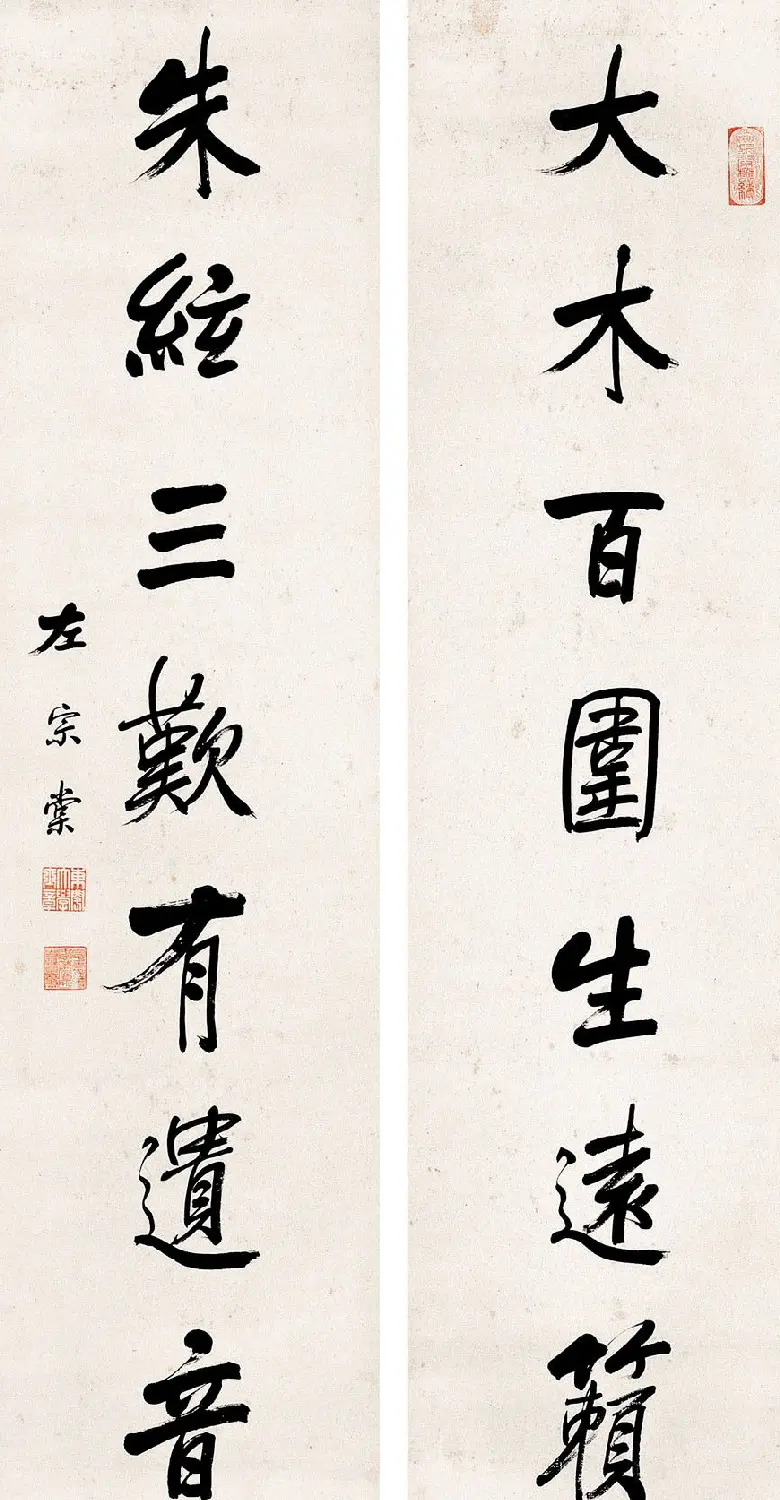 大木百圍生遠籟
朱絃三歎有遺音
左宗棠